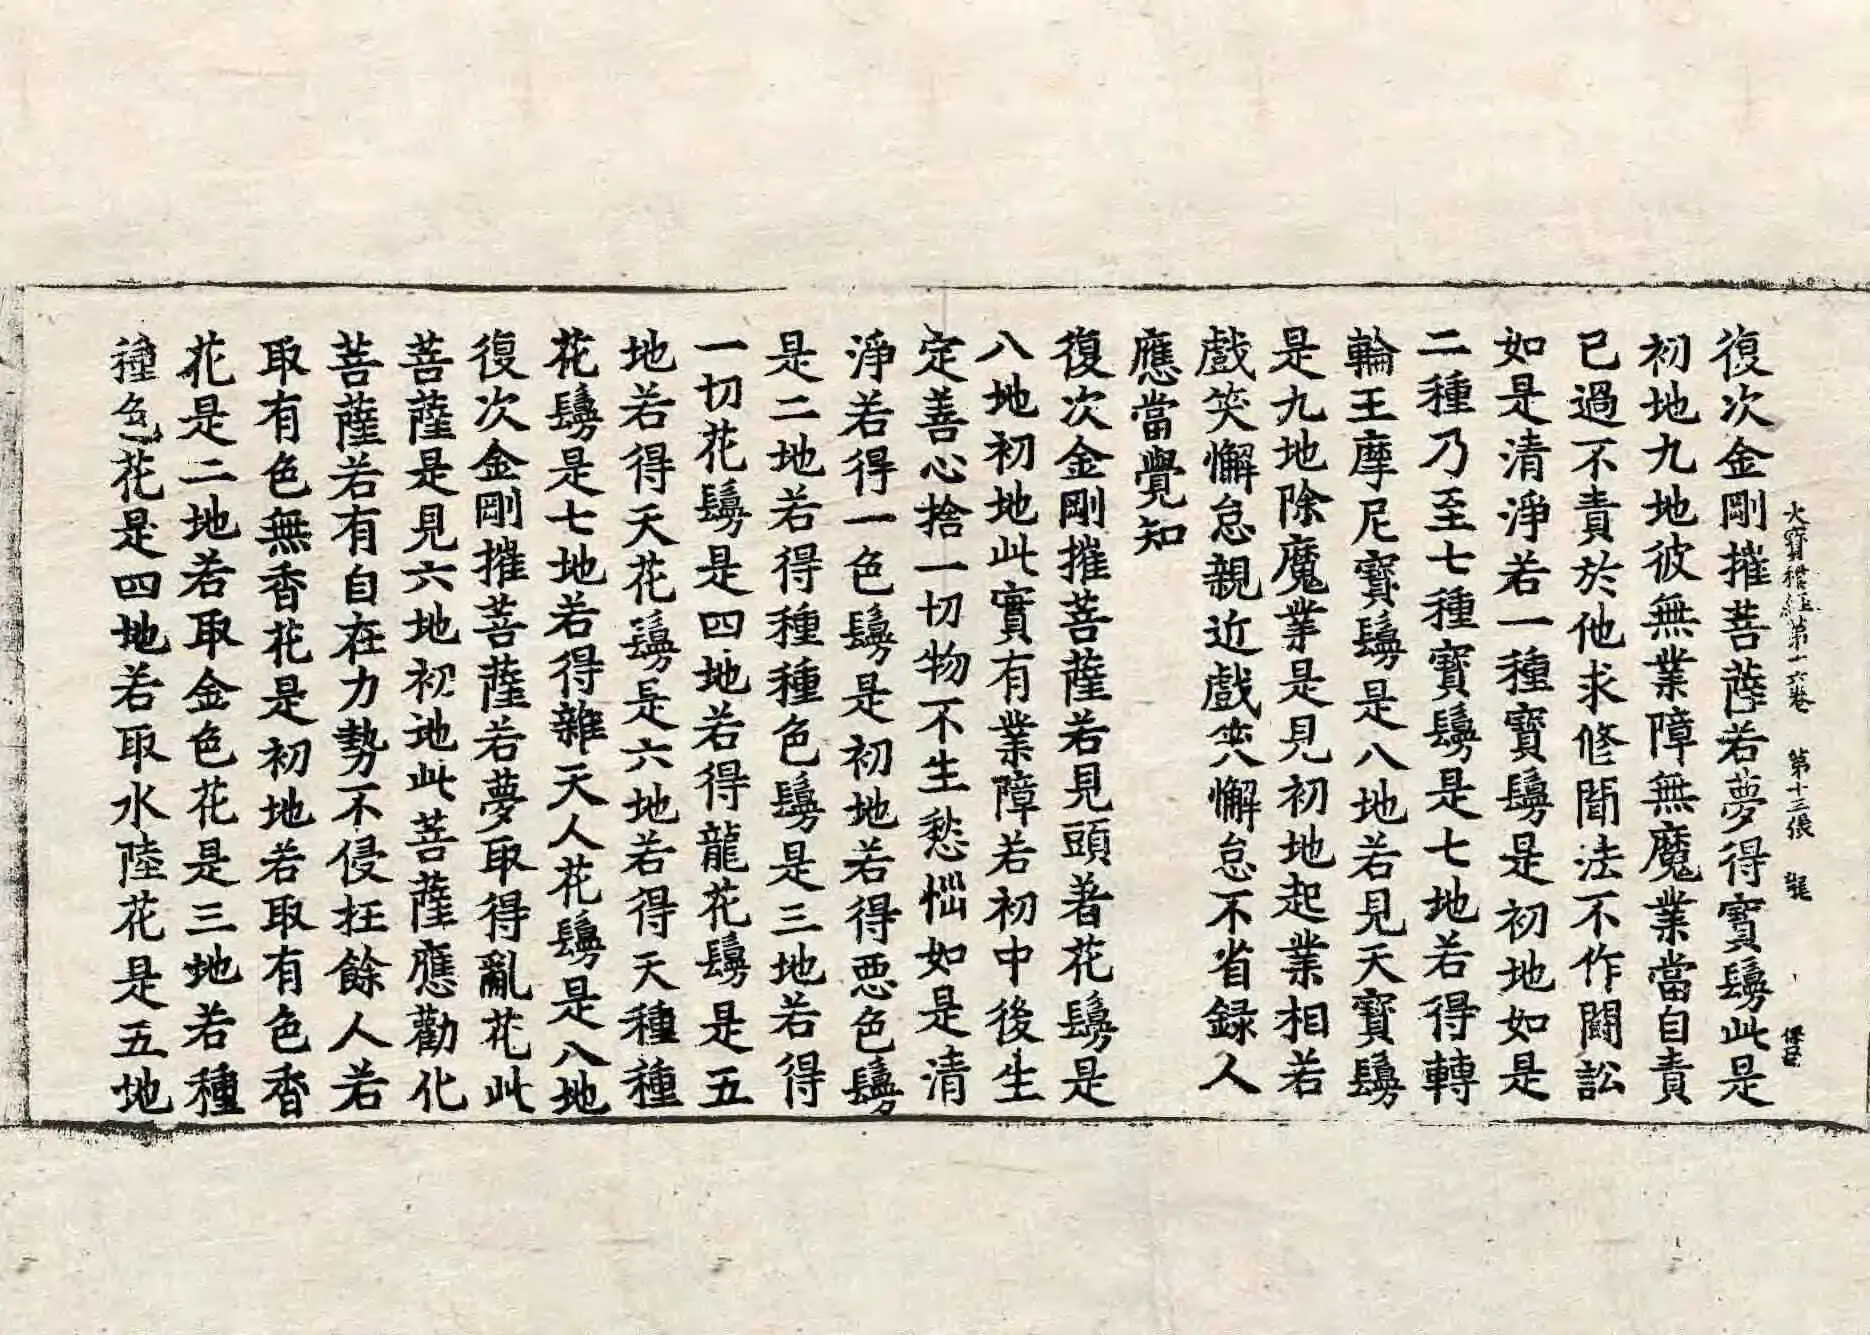 大寶積経第十六卷 第十三張 龍
復次金剛摧菩薩若夢得寶鬘此是
初地九地彼無業障無魔業當自責
已過不責於他求修聞法不作鬪訟
如是清淨若一種寶鬘是初地如是
二種乃至七種寶鬘是七地若得轉
輪王摩尼寶鬘是八地若見天寶鬘
是九地除魔業是見初地起業相若
戲笑懈怠親近戲笑懈怠不省録人
應當覺知
復次金剛摧菩薩若見頭著花鬘是
八地初地此實有業障若初中後生
定善心捨一切物不生愁惱如是清
淨若得一色鬘是初地若得惡色鬘
是二地若得種種色鬘是三地若得
一切花鬘是四地若得龍花鬘是五
地若得天花鬘是六地若得天種種
花鬘是七地若得雜天人花鬘是八地
復次金剛摧菩薩若夢取得亂花此
菩薩是見六地初地此菩薩應勸化
菩薩若有自在力勢不侵抂餘人若
取有色無香花是初地若取有色香
花是二地若取金色花是三地若種
種色花是四地若取水陸花是五地